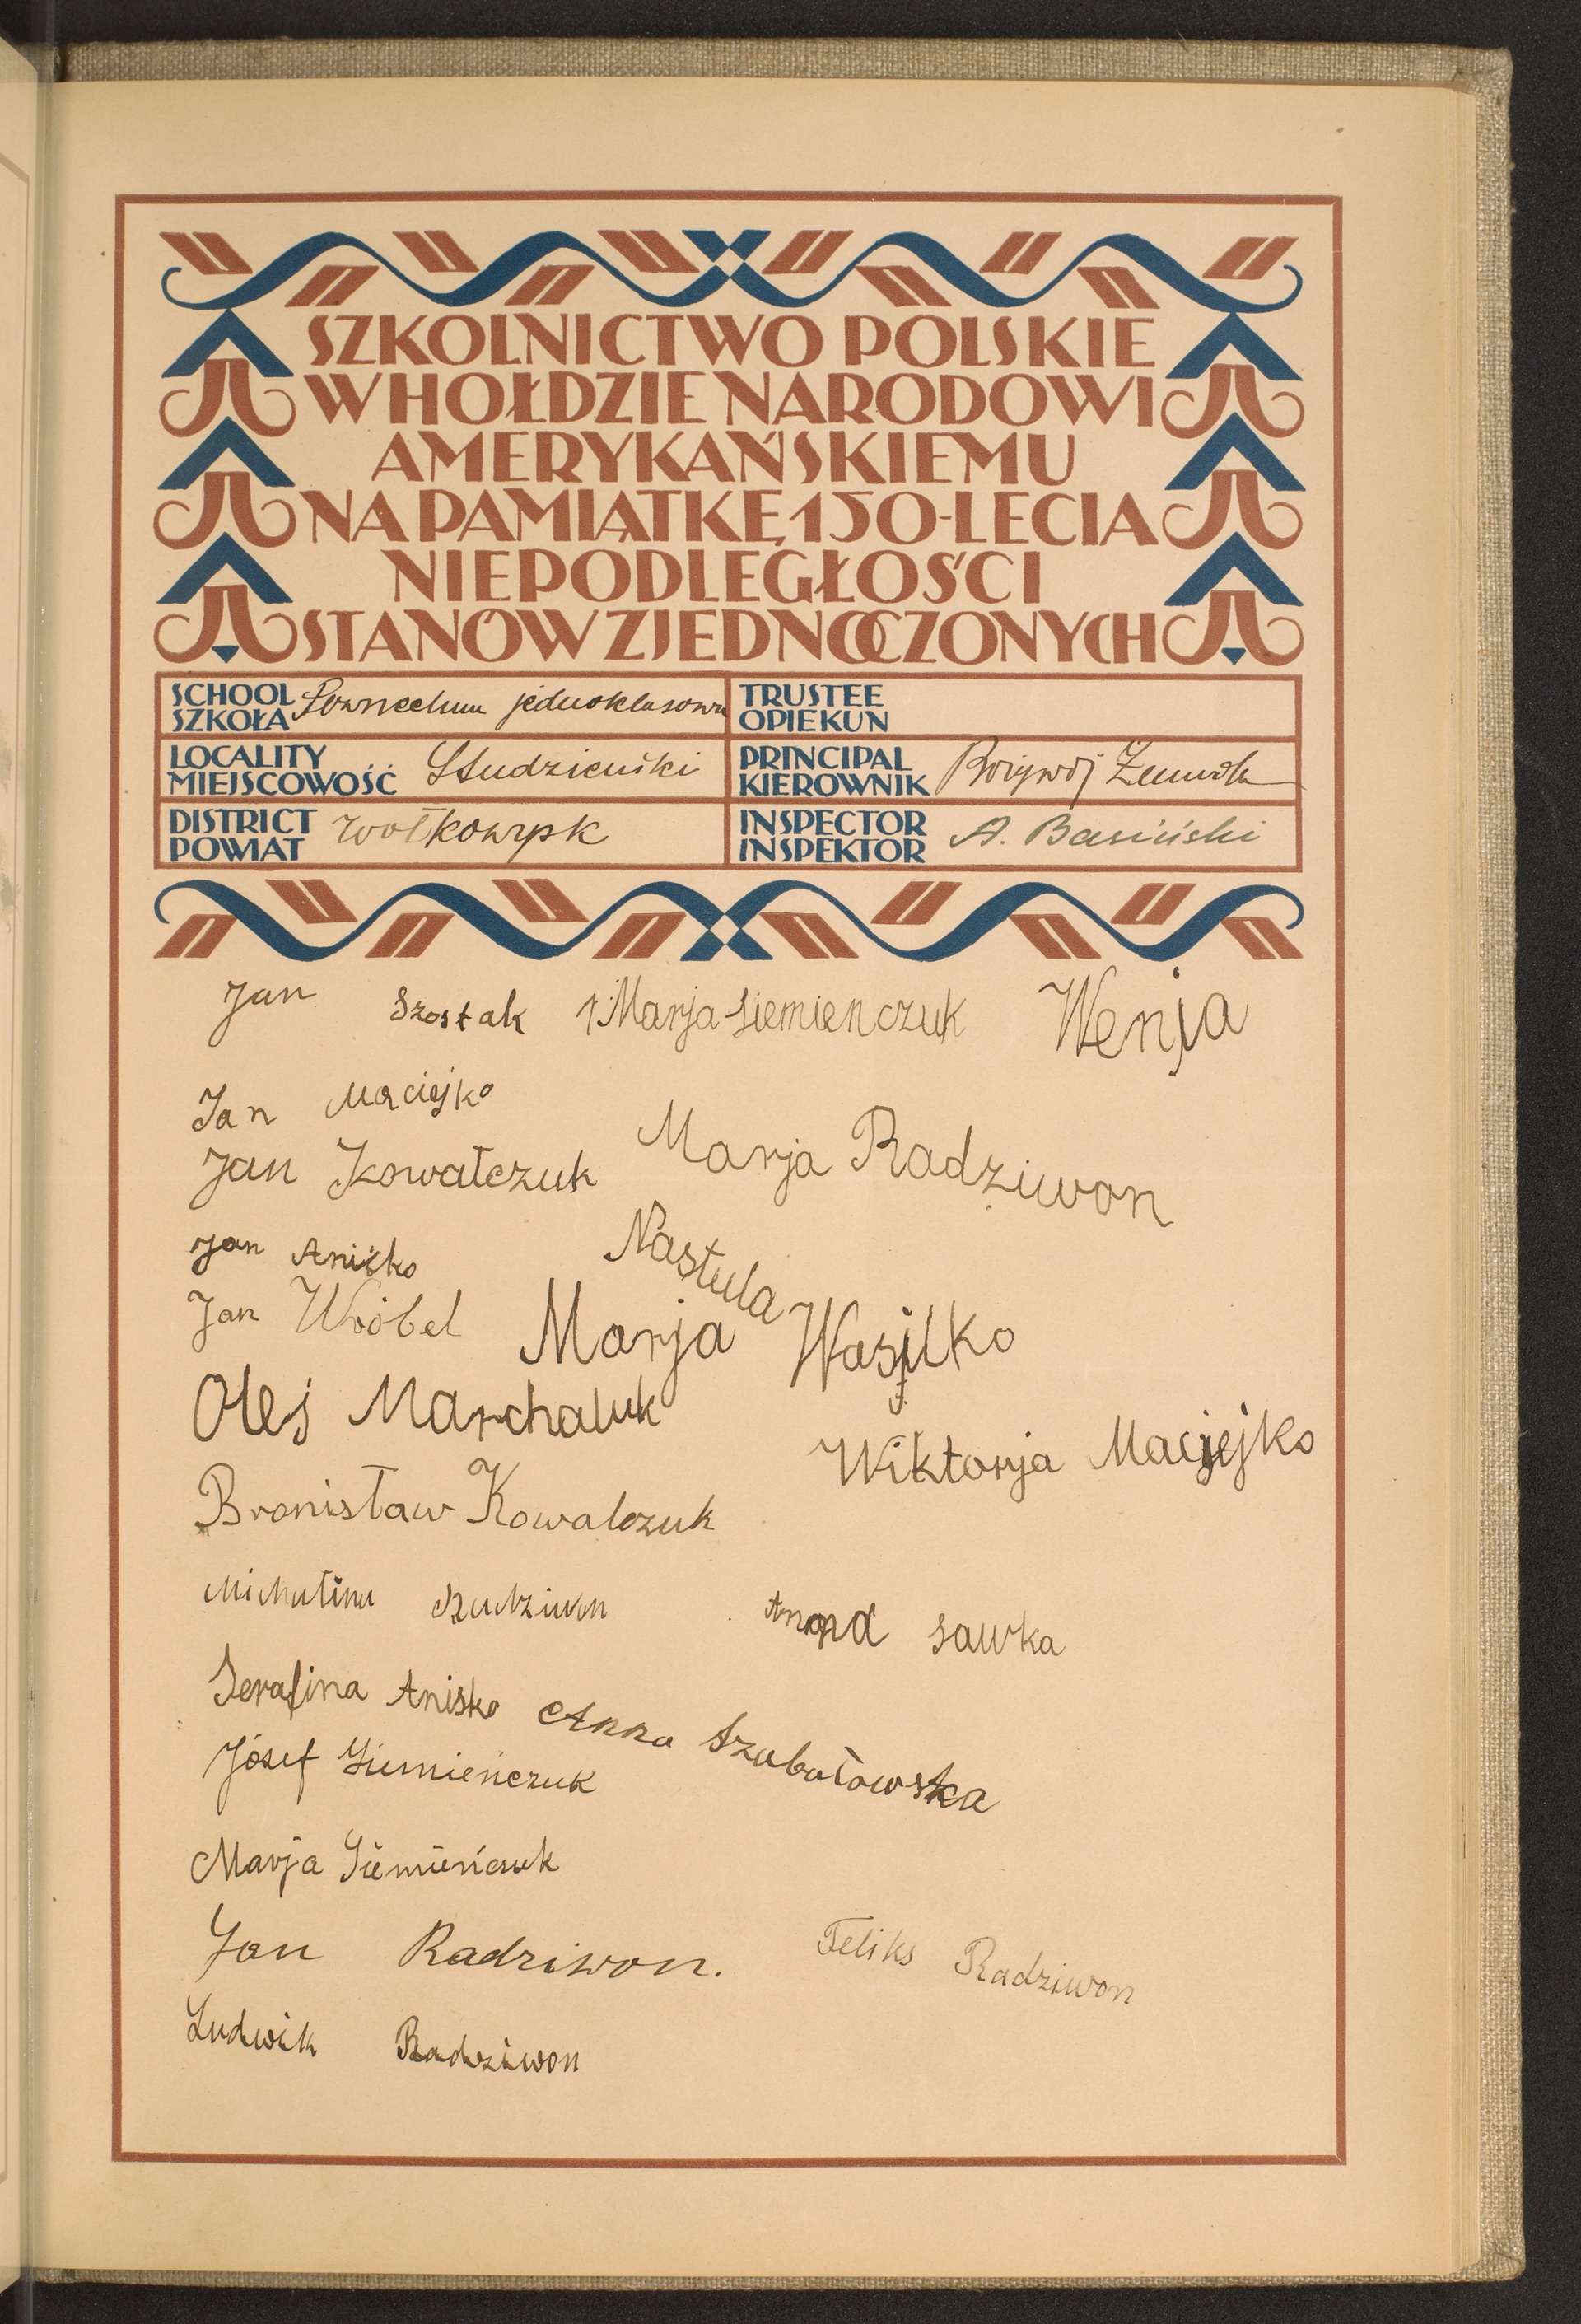 SZKOLNICTWO POLSKIE
W HOŁDZIE NARODOWI
AMERYKAŃSKIEMU
NA PAMIĄTKĘ 150-LECIA
NIEPODLEGŁOŚCI
STANÓW ZJEDNOCZONYCH
SCHOOL
SZKOŁA
jednoklasowa
TRUSTEE
OPIEKUN
LOCALITY
MIEJSCOWOŚĆ
Studzieński
PRINCIPAL
KIEROWNIK
DISTRICT
POWIAT
Wołkowysk
INSPECTOR
INSPEKTOR
A. Basiński
Jan Szostak
Marja Siemienczuk
Wenja
Jan Maciejko
Jan Kowalczuk
Marja Radziwon
Jan Aniśko
Nastula
Jan Wróbel
Marja Wasilko
Oleś Marchaluk
Wiktorja Maciejko
Bronisław Kowalczuk
Michalina Radziwon
Anna Sawka
Serafina Anisko
Anna Szabołowska
Józef Siemieńczuk
Marja Siemieńczuk
Jan Radziwon.
Feliks Radziwon
Ludwik Radziwon